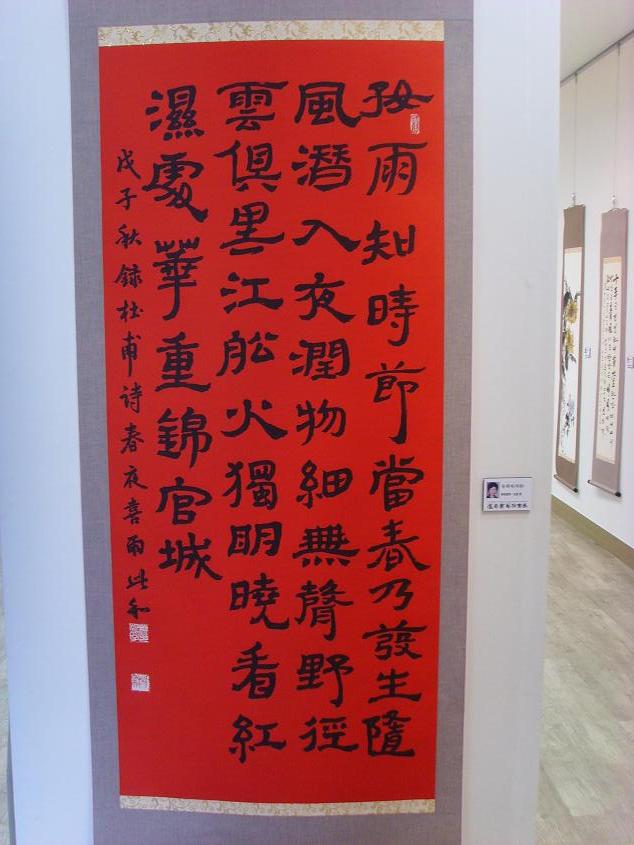 好雨知時節當春乃發生隨
風潛入夜潤物細無聲野徑
雲俱黑江舩火獨明曉看紅
濕處華重錦官城
戊子秋錄杜甫詩春夜喜雨